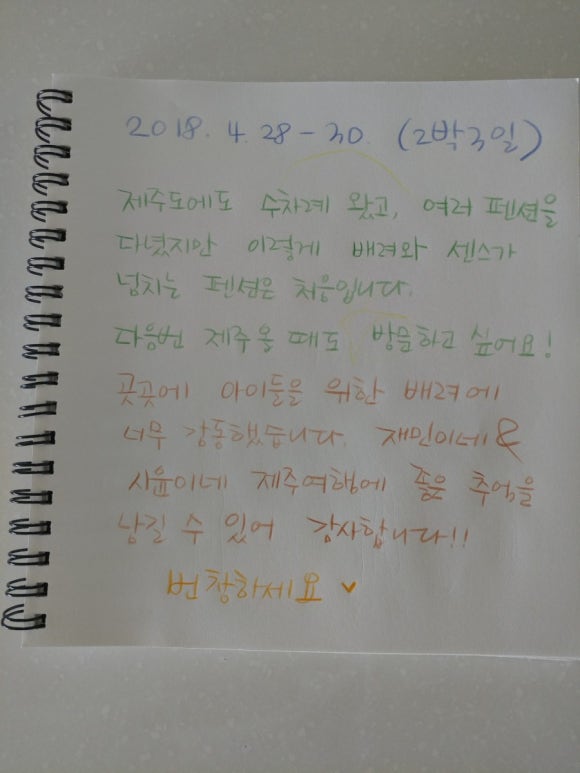 2018. 4. 28 - 30. (2박3일)
제주도에도 수차례 왔고, 여러 펜션을
다녔지만 이렇게 배려와 센스가
넘치는 펜션은 처음입니다.
다음번 제주올 때도 방문하고 싶어요!
곳곳에 아이들을 위한 배려에
너무 감동했습니다. 재민이네 &
시윤이네 제주여행에 좋은 추억을
남길 수 있어 감사합니다!!
번창하세요